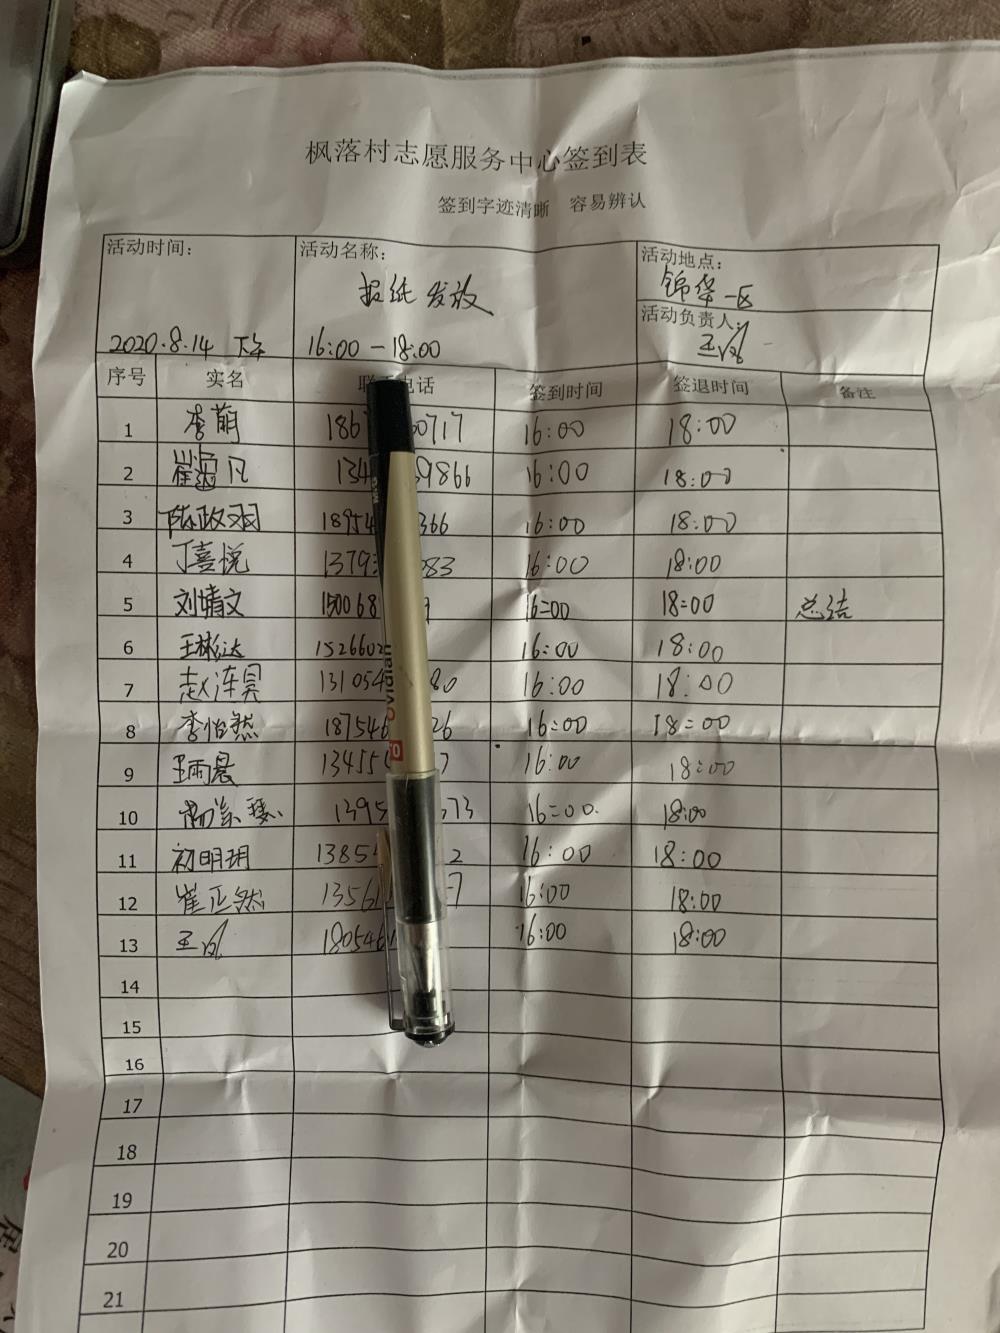 枫落村志愿服务中心签到表
签到字迹清晰 容易辨认
活动时间: 活动名称: 活动地点:
报纸发放 锦华一区
活动负责人:
王凤
2020.8.14 下午 16:00-18:00
序号 实名 电话 签到时间 签退时间 备注
1 李萌 186 0717 16:00 18:00
2 崔 凡 134 9866 16:00 18:00
3 陈政 18954 366 16:00 18:00
4 丁喜悦 1379 083 16:00 18:00
5 刘靖文 150068 16:00 18:00 总结
6 王彬达 1526602 16:00 18:00
7 赵泽昊 131054 80 16:00 18:00
8 李怡然 187546 26 16:00 18:00
9 王雨晨 13455 7 16:00 18:00
10 1395 373 16:00 18:00
11 初明玥 1385 2 16:00 18:00
12 崔正然 13561 7 16:00 18:00
13 王凤 180546 16:00 18:00
14
15
16
17
18
19
20
21
vidian